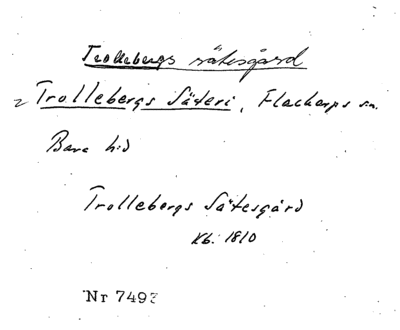 Trollebergs sätesgård
Trollebergs Säteri, Flackarps sn.
Bara hd
Trollebergs Sätesgård
Kb. 1810
Nr 7493